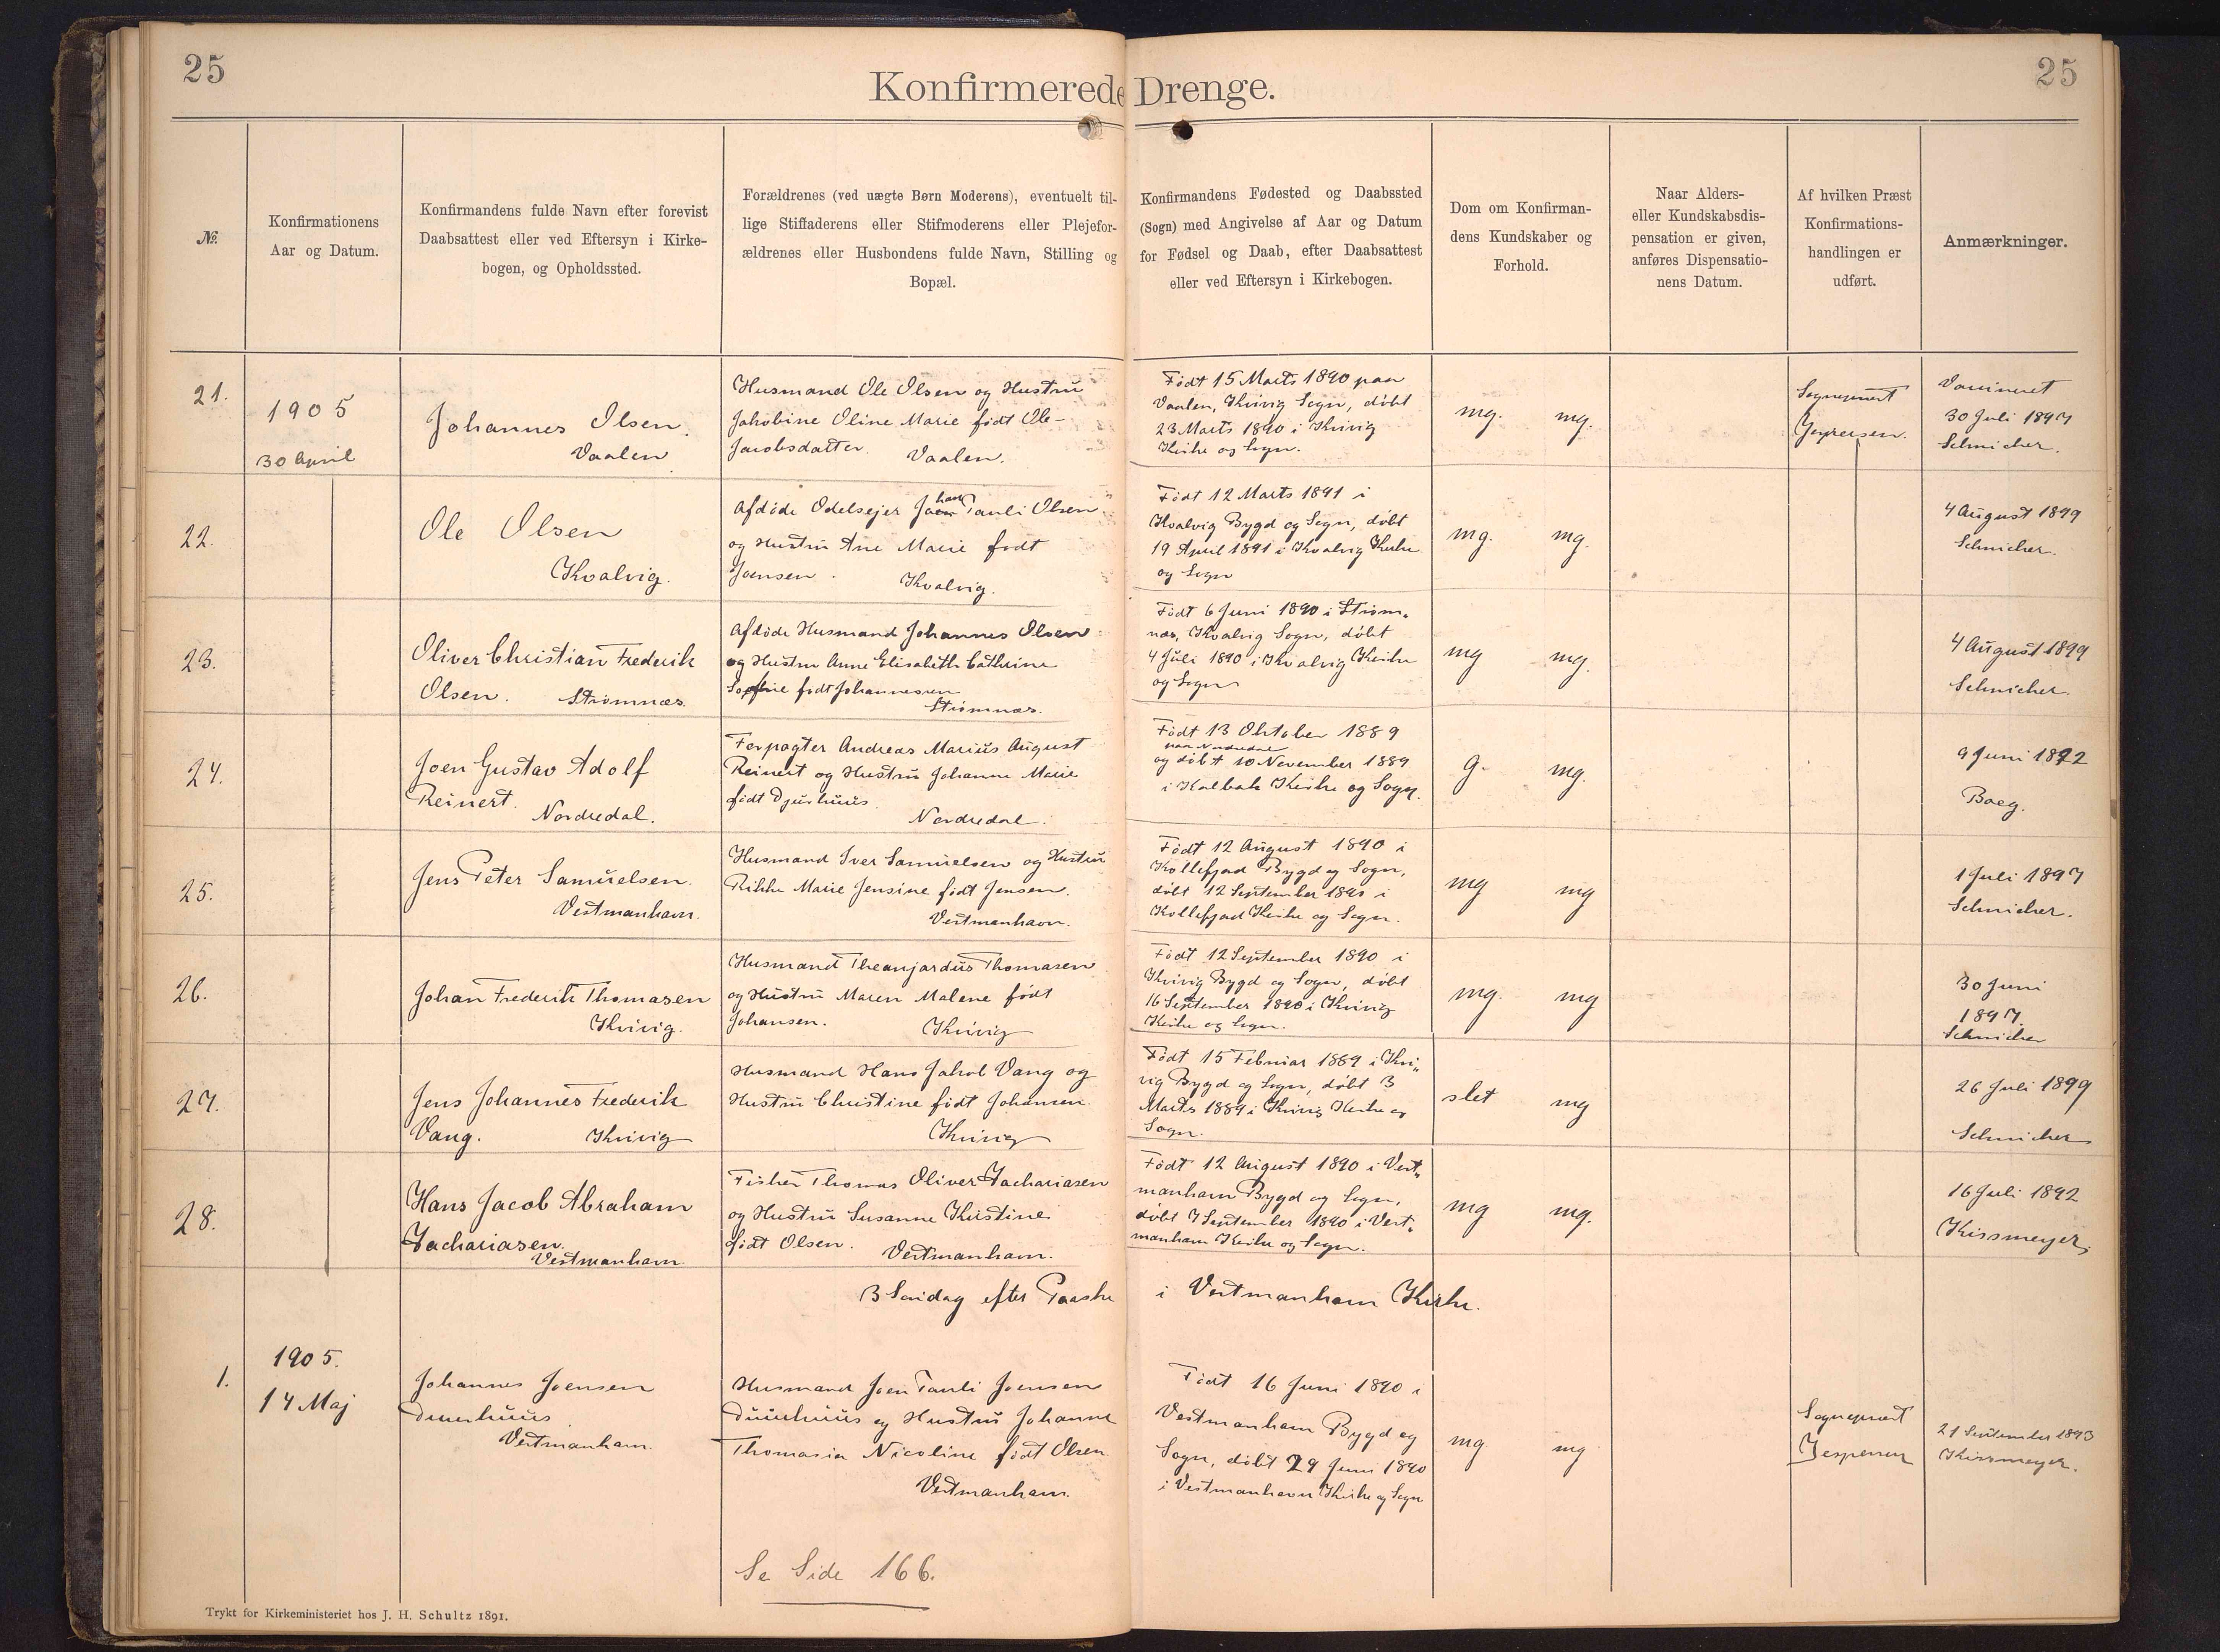 25
Konfirmerede Drenge.
25
№.
Konfirmationens
Aar og Datum.
Konfirmandens fulde Navn efter forevist
Daabsattest eller ved Eftersyn i Kirke-
bogen, og Opholdssted.
Forældrenes (ved uægte Børn Moderens), eventuelt til-
lige Stiffaderens eller Stifmoderens eller Plejefor-
ældrenes eller Husbondens fulde Navn, Stilling og
Bopæl.
Konfirmandens Fødested og Daabssted
(Sogn) med Angivelse af Aar og Datum
for Fødsel og Daab, efter Daabsattest
eller ved Eftersyn i Kirkebogen.
Dom om Konfirman-
dens Kundskaber og
Forhold.
Naar Alders-
eller Kundskabsdis-
pensation er given,
anføres Dispensatio-
nens Datum.
Af hvilken Præst
Konfirmations-
handlingen er
udført.
Anmærkninger.
21.
1905
30 April
Johannes Olsen.
Vaalen
Husmand Ole Olsen og Hustru
Jakobine Oline Marie født Ole-
Jacobsdatter. Vaalen.
Født 15 Marts 1890 paa
Vaalen, Kvivig Sogn, døbt
23 Marts 1890 i Kvivig
Kirke og Sogn.
mg. mg.
Sognepræst
Jespersen.
Vaccineret
30 Juli 1897
Schnicher.
22.
Ole Olsen
Kvalvig.
Afdøde Odelsejer Johan Pauli Olsen
og Hustru Ane Marie født
Joensen. Kvalvig.
Født 12 Marts 1891 i
Kvalvig Bygd og Sogn, døbt
19 April 1891 i Kvalvig Kirke
og Sogn
mg. mg.
4 August 1899
Schnicher.
23.
Oliver Christian Frederik
Olsen. Strømnæs.
Afdøde Husmand Johannes Olsen
og Hustru Anne Elisabeth Cathrine
Sofie født Johannesen
Strømnæs.
Født 6 Juni 1890 i Strøm-
næs, Kvalvig Sogn, døbt
4 Juli 1890 i Kvalvig Kirke
og Sogn
mg mg.
4 August 1899
Schnicher.
24.
Joen Gustav Adolf
Reinert. Nordredal.
Forpagter Andreas Marius August
Reinert og Hustru Johanne Marie
født Djurhuus.
Nordredal.
Født 13 Oktober 1889
paa Nordredal
og døbt 10 November 1889
i Kalbak Kirke og Sogn.
g. mg.
9 Juni 1892
Baeg.
25.
Jens Peter Samuelsen.
Vestmanhavn.
Husmand Iver Samuelsen og Hustru
Rikke Marie Jensine født Jensen.
Vestmanhavn.
Født 12 August 1890 i
Kollefjord Bygd og Sogn,
døbt 12 September 1890 i
Kollefjord Kirke og Sogn.
mg mg
1 Juli 1897
Schnicher.
26.
Johan Frederik Thomasen
Kvivig.
Husmand Theanjardus Thomasen
og Hustru Maren Malene født
Johansen. Kvivig
Født 12 September 1890 i
Kvivig Bygd og Sogn, døbt
16 September 1890 i Kvivig
Kirke og Sogn.
mg. mg
30 Juni
1897.
Schnicher
27.
Jens Johannes Frederik
Vang. Kvivig
Husmand Hans Jakob Vang og
Hustru Christine født Johansen.
Kvivig
Født 15 Februar 1889 i Kvi-
vig Bygd og Sogn, døbt 3
Marts 1889 i Kvivig Kirke og
Sogn.
slet mg
26 Juli 1899
Schnicher
28.
Hans Jacob Abraham
Zachariasen.
Vestmanhavn.
Fisker Thomas Oliver Zachariasen
og Hustru Susanne Kristine
født Olsen. Vestmanhavn.
Født 12 August 1890 i Vest-
manhavn Bygd og Sogn,
døbt 7 September 1890 i Vest-
manhavn Kirke og Sogn.
mg mg.
16 Juli 1892
Kissmeyer.
3 Søndag efter Paaske i Vestmanhavn Kirke.
1.
1905.
14 Maj
Johannes Joensen
Duurhuus
Vestmanhavn.
Husmand Joen Pauli Joensen
Duurhuus og Hustru Johanne
Thomasia Nicoline født Olsen
Vestmanhavn.
Født 16 Juni 1890 i
Vestmanhavn Bygd og
Sogn, døbt 29 Juni 1890
i Vestmanhavn Kirke og Sogn
mg mg
Sognepræst
Jespersen
21 September 1893
Kissmeyer.
Se Side 166.
Trykt for Kirkeministeriet hos J. H. Schultz 1891.